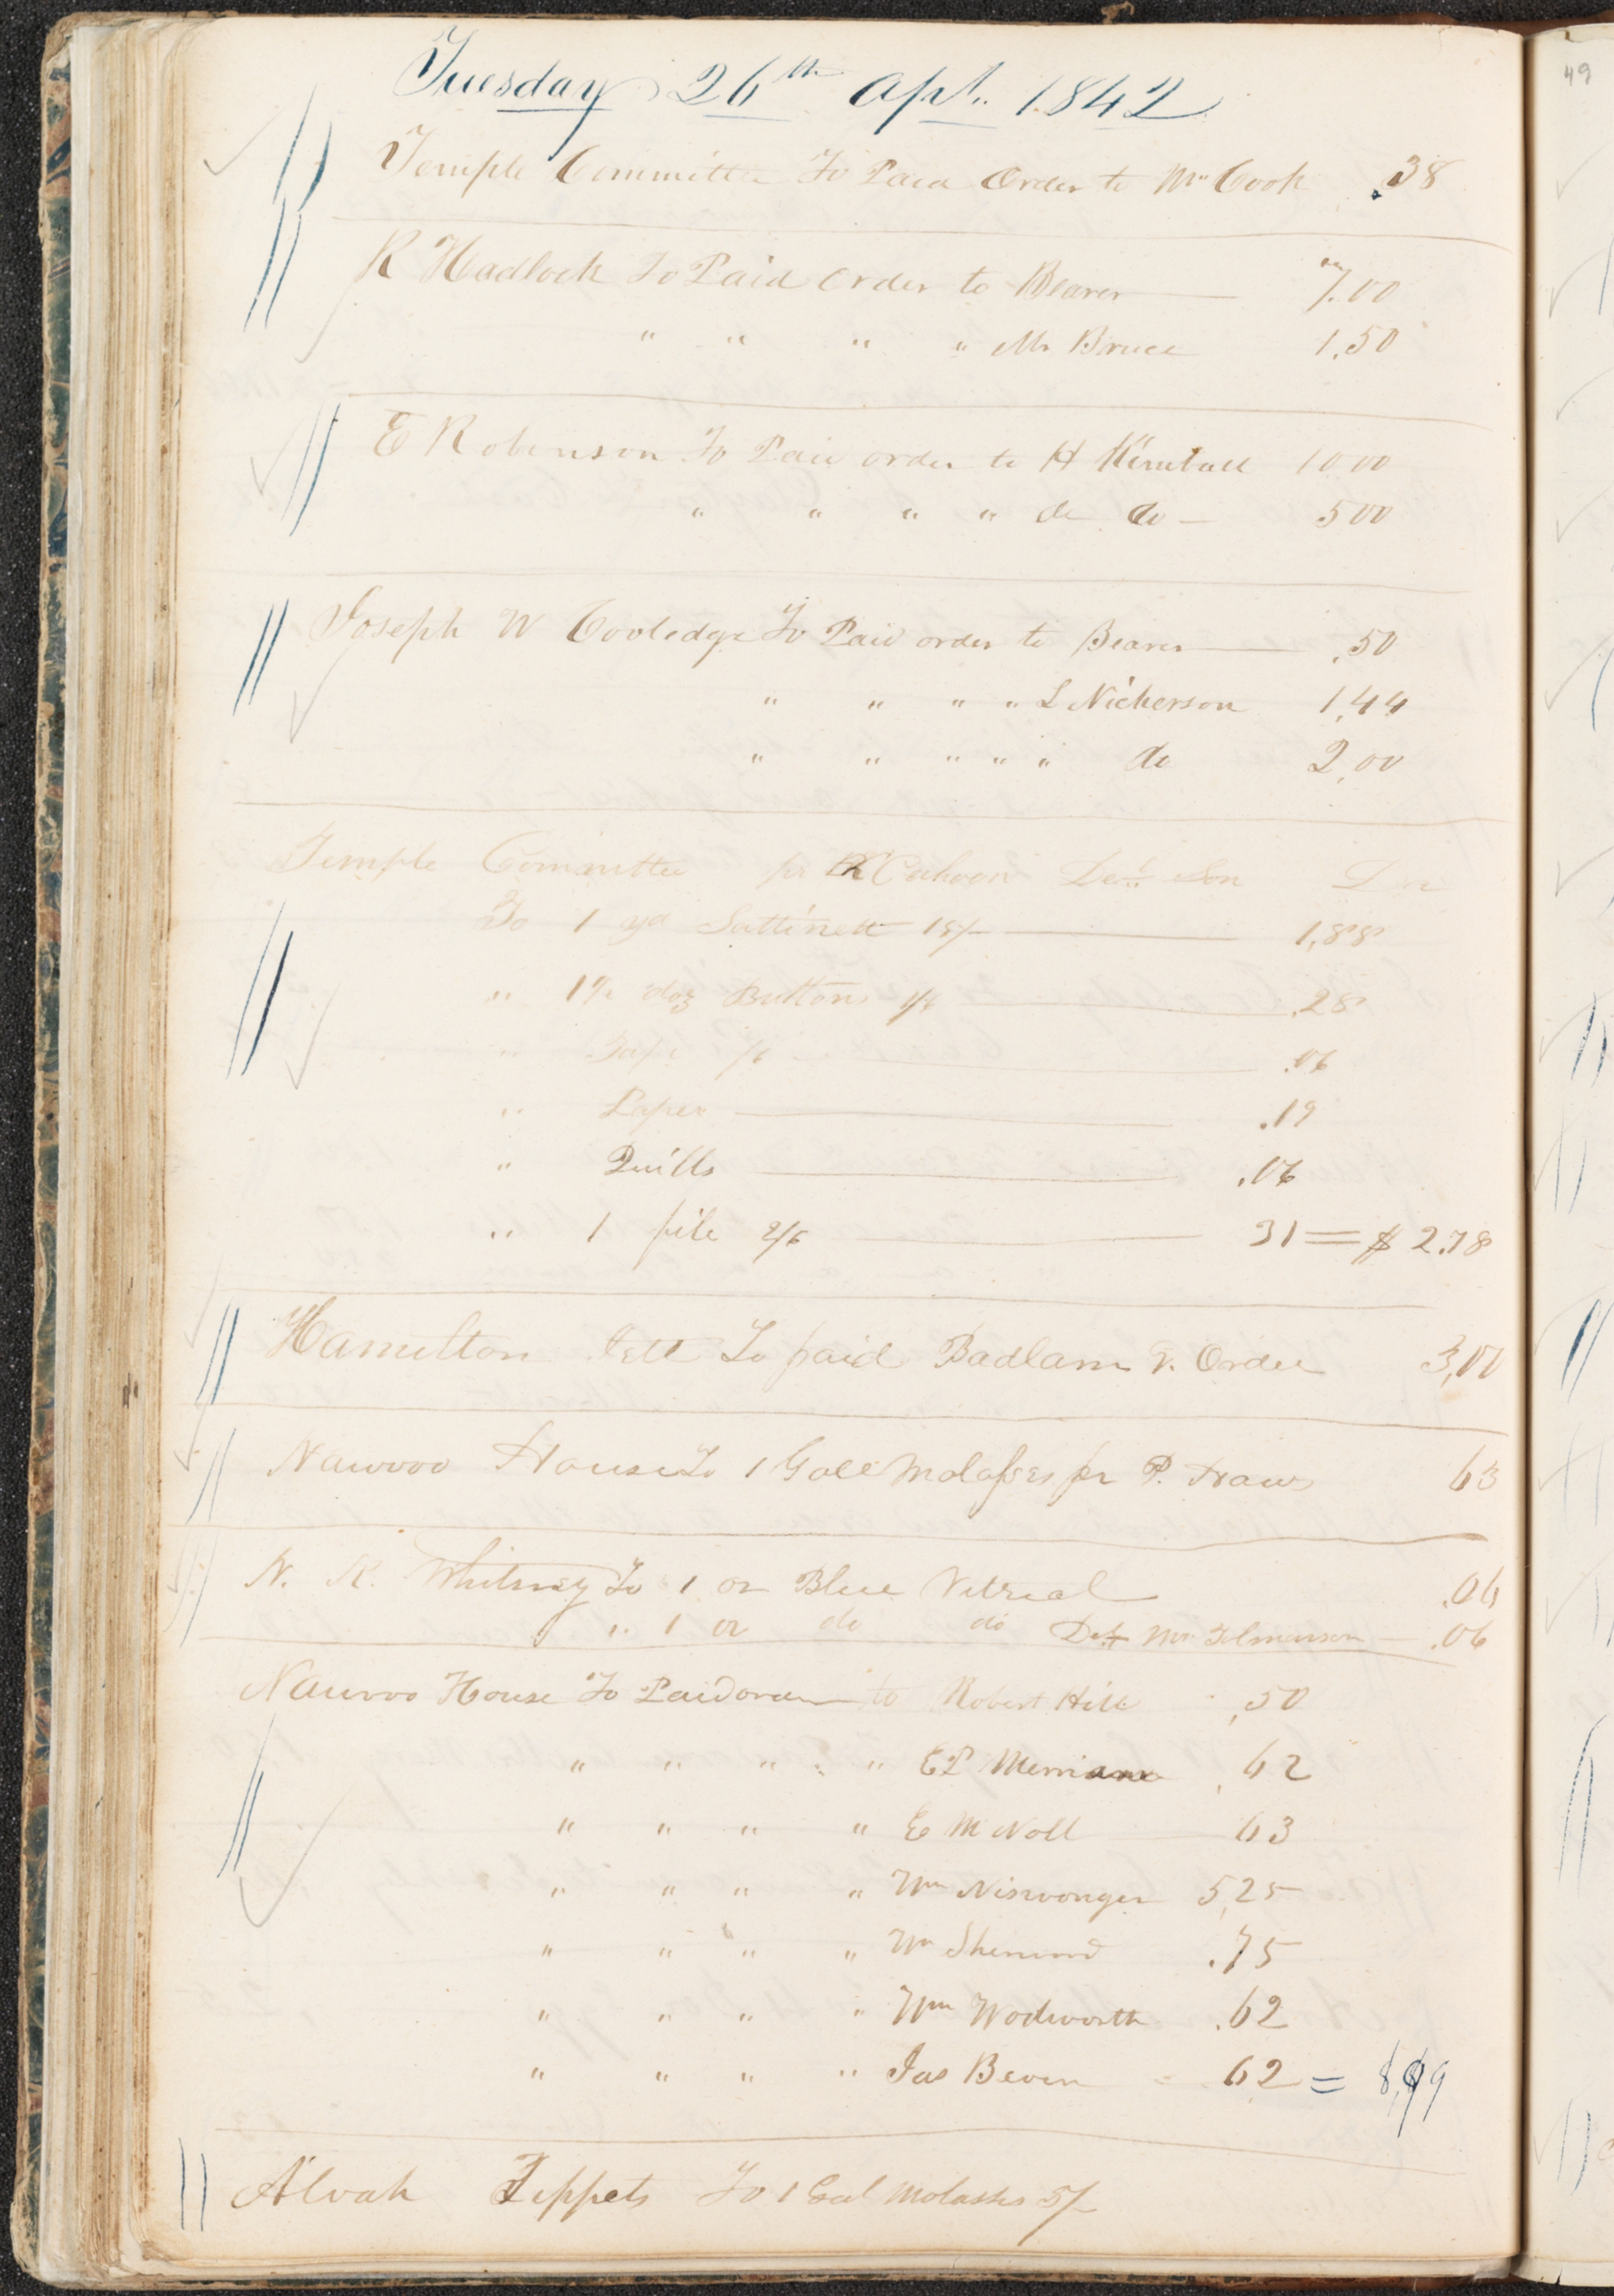 49
Tuesday 26th Apl. 1842
Temple Committee To Paid Order to Mr Cook .38
R Hadlock To Paid Order to Bearer — 7.00
" " " " Mr Bruce 1.50
E Robinson To Paid order to H Kimball 10 00
" " " " do do — 5 00
Joseph W Cooledge To Paid order to Bearer — .50
" " " " L Nickerson 1,44
" " " " " do 2,00
Temple Committee pr R Cahoon Deld Son Dr
To 1 yd Sattinett 15/— — 1,88
" 1 1/2 doz Buttons 1/6 — .28
" Tape /6 — .06
" Paper — .19
" Quills — .06
" 1 file 2/6 — 31 = $ 2.78
Hamilton To paid Badlam Order 3,00
Nauvoo House To 1 Gall Molasses pr P. Haws 63
N. K. Whitney To 1 oz Blue Vitreal .06
" 1 oz do do Deld Mr — .06
Nauvoo House To Paid order to Robert Hill ,50
" " " " " E P Merriam ,62
" " " " E M Noll 63
" " " " Wm Niswonger 5,25
" " " " Wm Sherwood .75
" " " " Wm Wodworth .62
" " " " Jas Beven 62 = 8,99
Alvah Tippets To 1 Gal Molasses 5/—